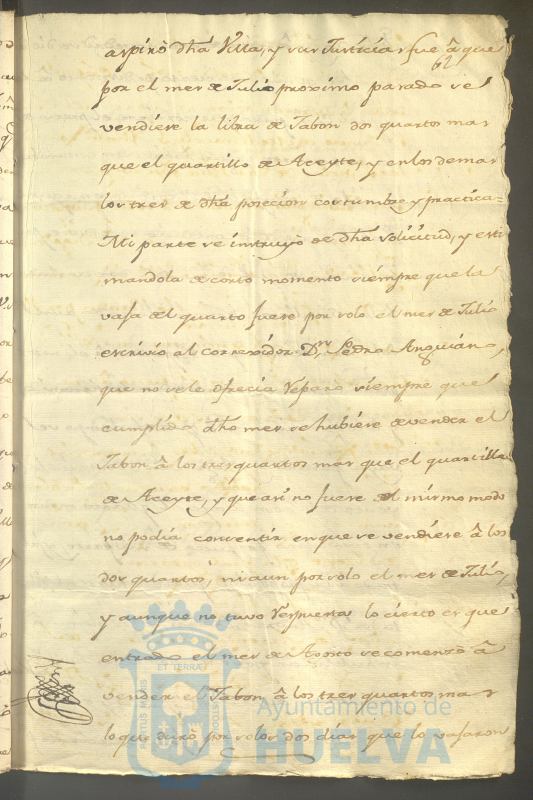 aspirò dha Villa, y sus Justicias fue â que
62
por el mes de Julio proximo pasado se
vendiese la libra de Jabon dos quartos mas
que el quartillo de Aceyte, y en los demas
los tres de dha posecion costumbre y practica=
Mi parte se instruyò de dha solicitud, y esti
mandola de corto momento siempre que la
vaja del quarto fuese por solo el mes de Julio
escrivio al correxidor Dn Pedro Anguiano,
que no se le ofrecia reparo siempre que
cumplido dho mes se hubiese de vender el
Jabon â los tres quartos mas que el quartillo
de Aceyte, y que asi no fuese del mismo modo
no podia consentir en que se vendiese â los
dos quartos, ni aun por solo el mes de Julio,
y aunque no tuvo respuesta lo cierto es que
entrado el mes de Agosto se comenzò â
vender el Jabon â los tres quartos mas
lo que durò por solos dos dias que lo vajaron
PORTUS MARIS ET TERRAE CUSTODIA
Ayuntamiento de
HUELVA